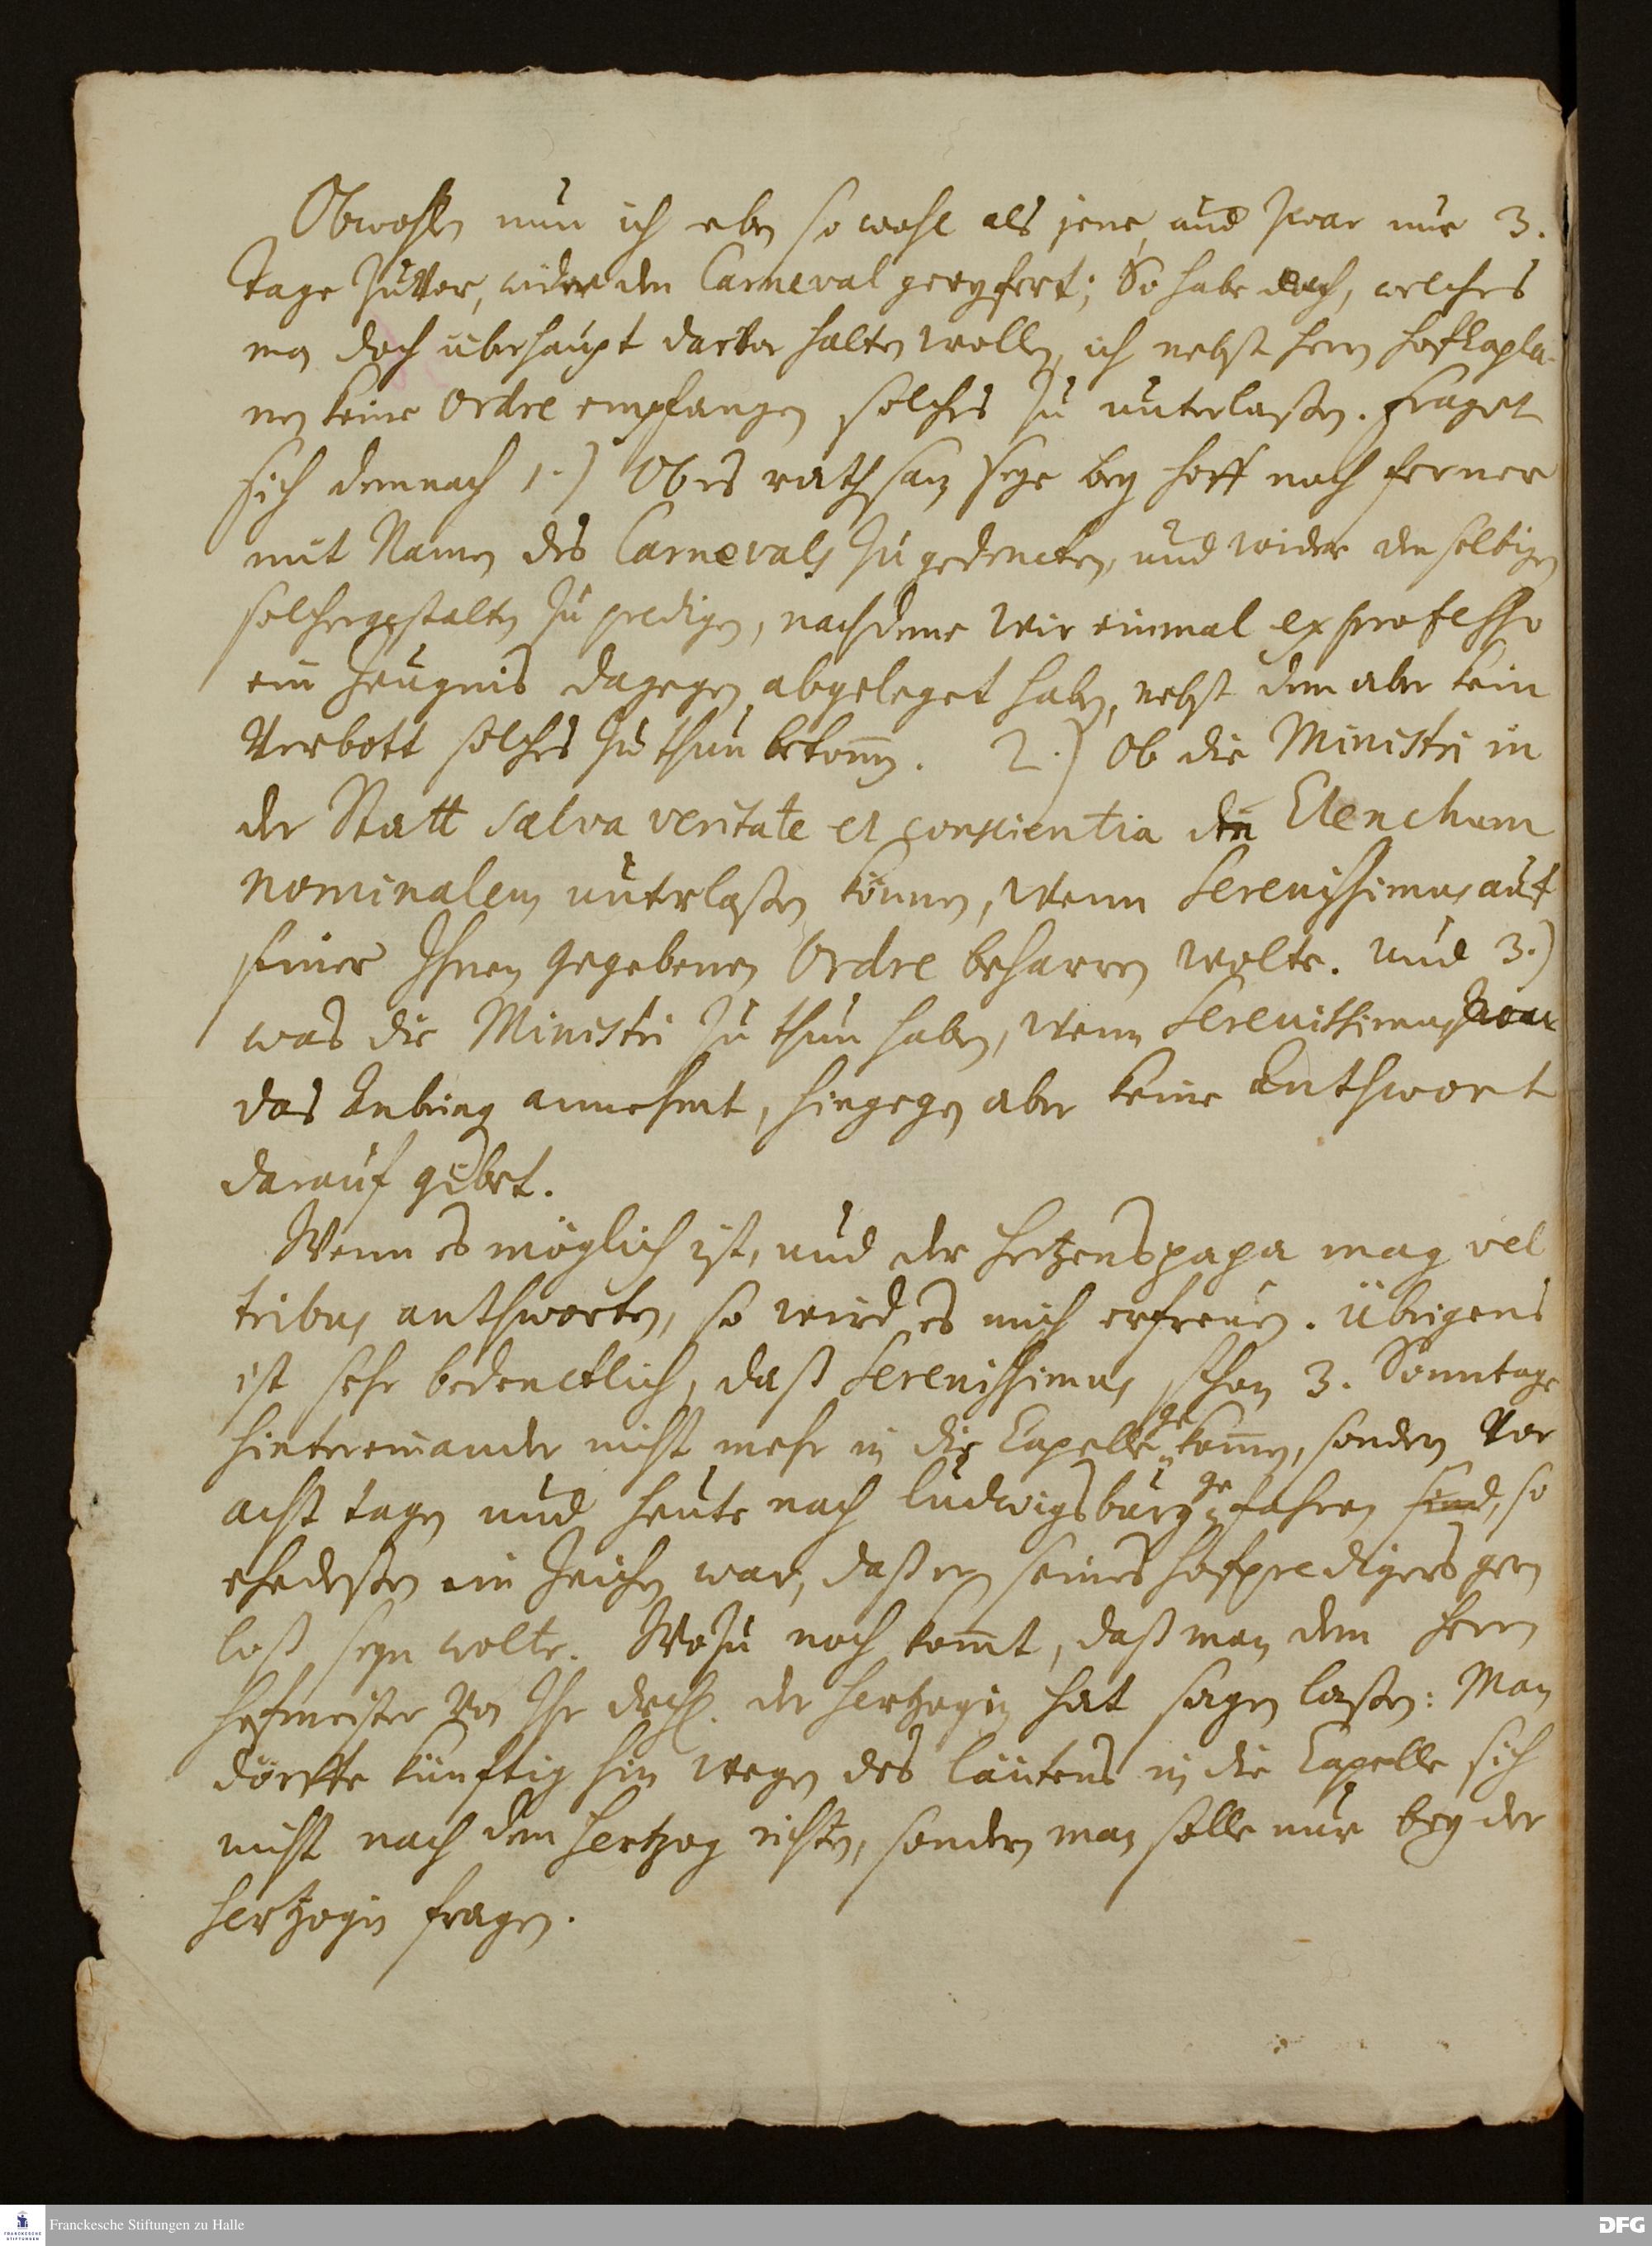 Obwohln nun ich eben so wohl als jene, und zwar nur 3.
Tage zuvor, wider den Carneval geeyfert; So habe doch, welches
man doch überhaupt darvor halten wollen, ich nebst herrn hofkapla-
nen keine Ordre empfangen solches zu unterlaßen. Fraget
sich demnach 1.) Ob es rathsam seye bey hoff noch ferner
mit Namen des Carnevals zu gedencken, und wider denselbigen
solchergestalten zu predigen, nachdeme wir einmal ex professo
ein Zeugnis dagegen abgeleget haben, nebst dem aber kein
Verbott solches zu thun bekomen. 2.) Ob die Ministri in
der Statt salva veritate et conscientia den Elenchum
nominalem unterlaßen können, wenn Serenissimus auf
seiner Ihnen gegebenen Ordre beharren wolte. und 3.)
was die Ministri zu thun haben, wenn Serenissimus zwar
das Anbring annehmt, hingegen aber keine Anthwort
darauf gibet.
Wenn es möglich ist, und der Hertzenspapa mag vel
tribus anthworten, so wird es mich erfreuen. Übrigens
ist sehr bedencklich, daß Serenissimus schon 3. Sonntage
hintereinander nicht mehr in die Capelle gekomen, sondern vor
acht tagen und heute nach Ludwigsburg gefahren sind, so
ehedeßen ein Zeichen war, daß er seines hofpredigers gern
loß seyn wolte. Wozu noch komt, daß man dem herrn
hofmeister von Ihr drchl. der Hertzogin hat sagen laßen: Man
dörffte künftig hin wegen des läutens in die Capelle sich
nicht nach dem Hertzog richten, sondern man solle nur bey der
Hertzogin fragen.
Franckesche Stiftungen zu Halle
FRANCKESCHE STIFTUNGEN
DFG